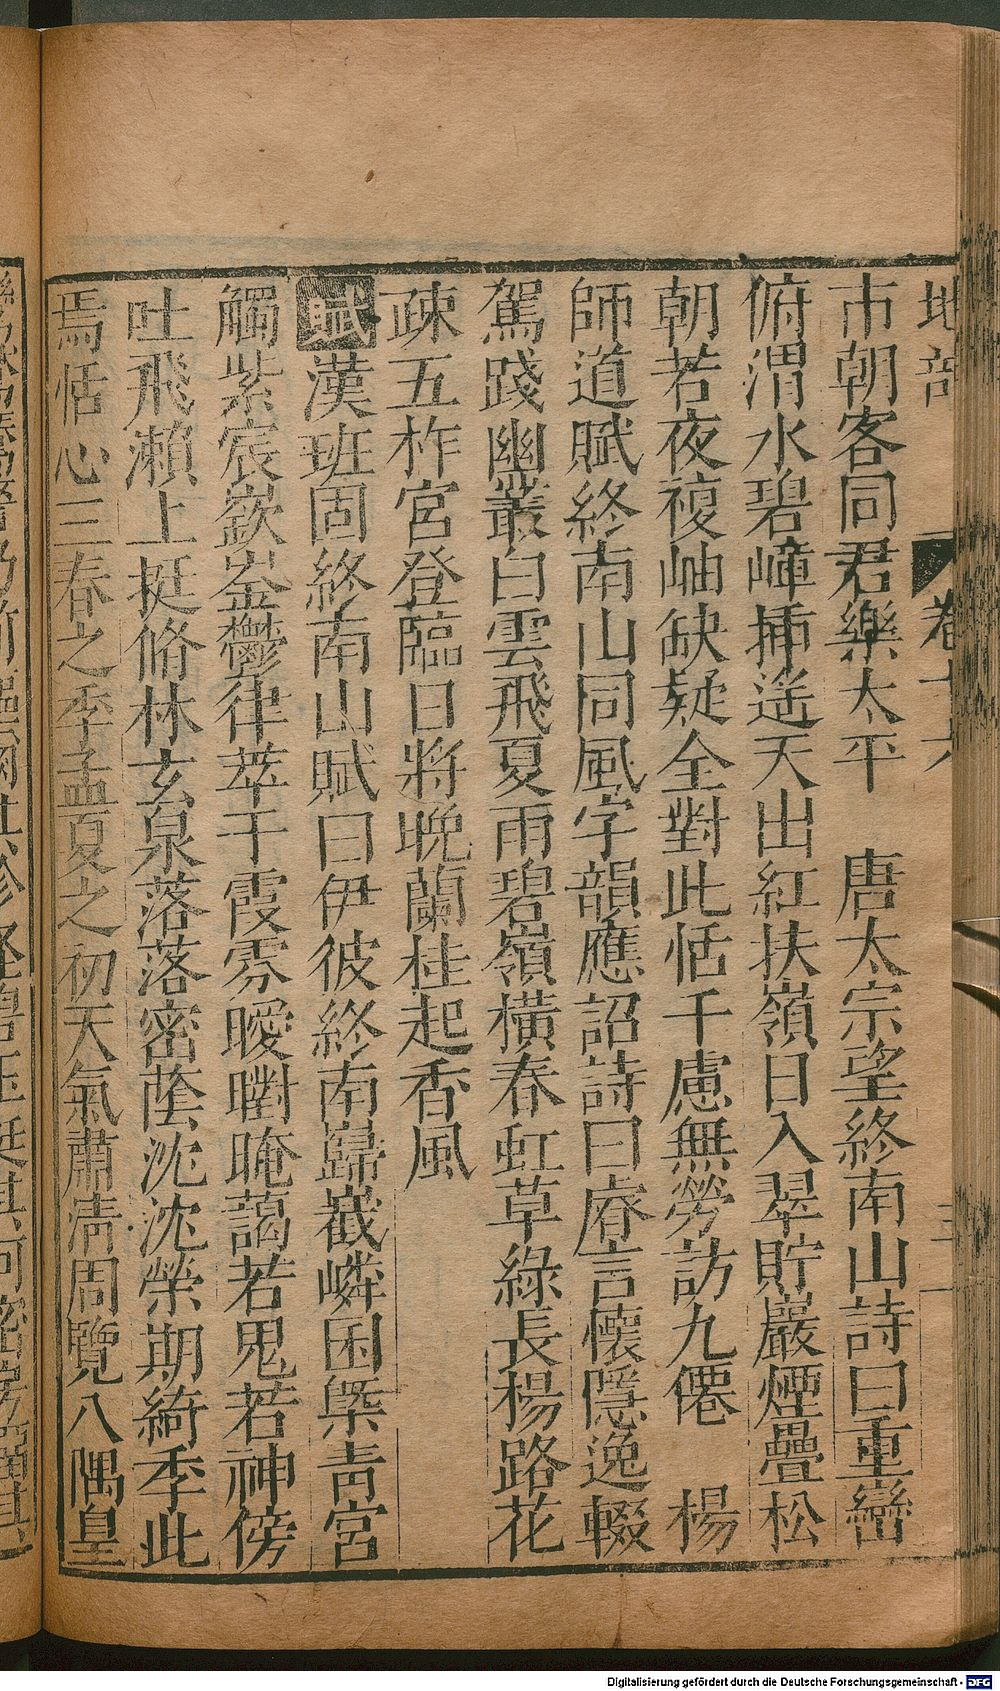 地部
卷十六
三
市朝客同君樂太平　唐太宗望終南山詩曰重巒
俯渭水碧嶂揷遥天出紅扶嶺日入翠貯巖煙疊松
朝若夜複岫缺疑全對此恬千慮無勞訪九僊　楊
師道賦終南山同風字韻應詔詩曰睠言懷隱逸輟
駕踐幽叢白雲飛夏雨碧嶺橫春虹草綠長楊路花
疎五柞宮登臨日將晚蘭桂起香風
賦漢班固終南山賦曰伊彼終南巋嶻嶙囷槩青宮
觸紫宸嶔崟鬱律萃于霞雰曖㬣晻藹若鬼若神傍
吐飛瀨上挺脩林玄泉落落密蔭沈沈榮期綺季此
焉恬心三春之季孟夏之初天氣肅清周覽八隅皇
Digitalisierung gefördert durch die Deutsche Forschungsgemeinschaft - DFG